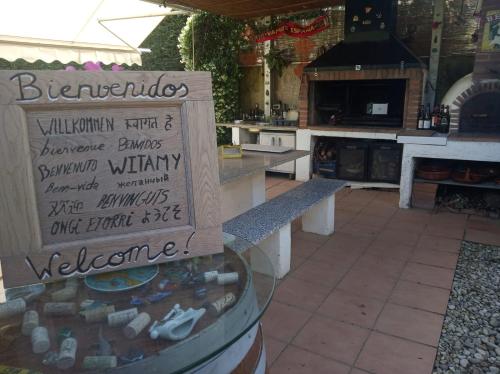 Bienvenidos
WILLKOMMEN स्वागत है
bienvenue BENVIDOS
BENVENUTO WITAMY
Bem-vido желанный
欢迎 BENVINGUTS
ONGI ETORRI ようこそ
Welcome!